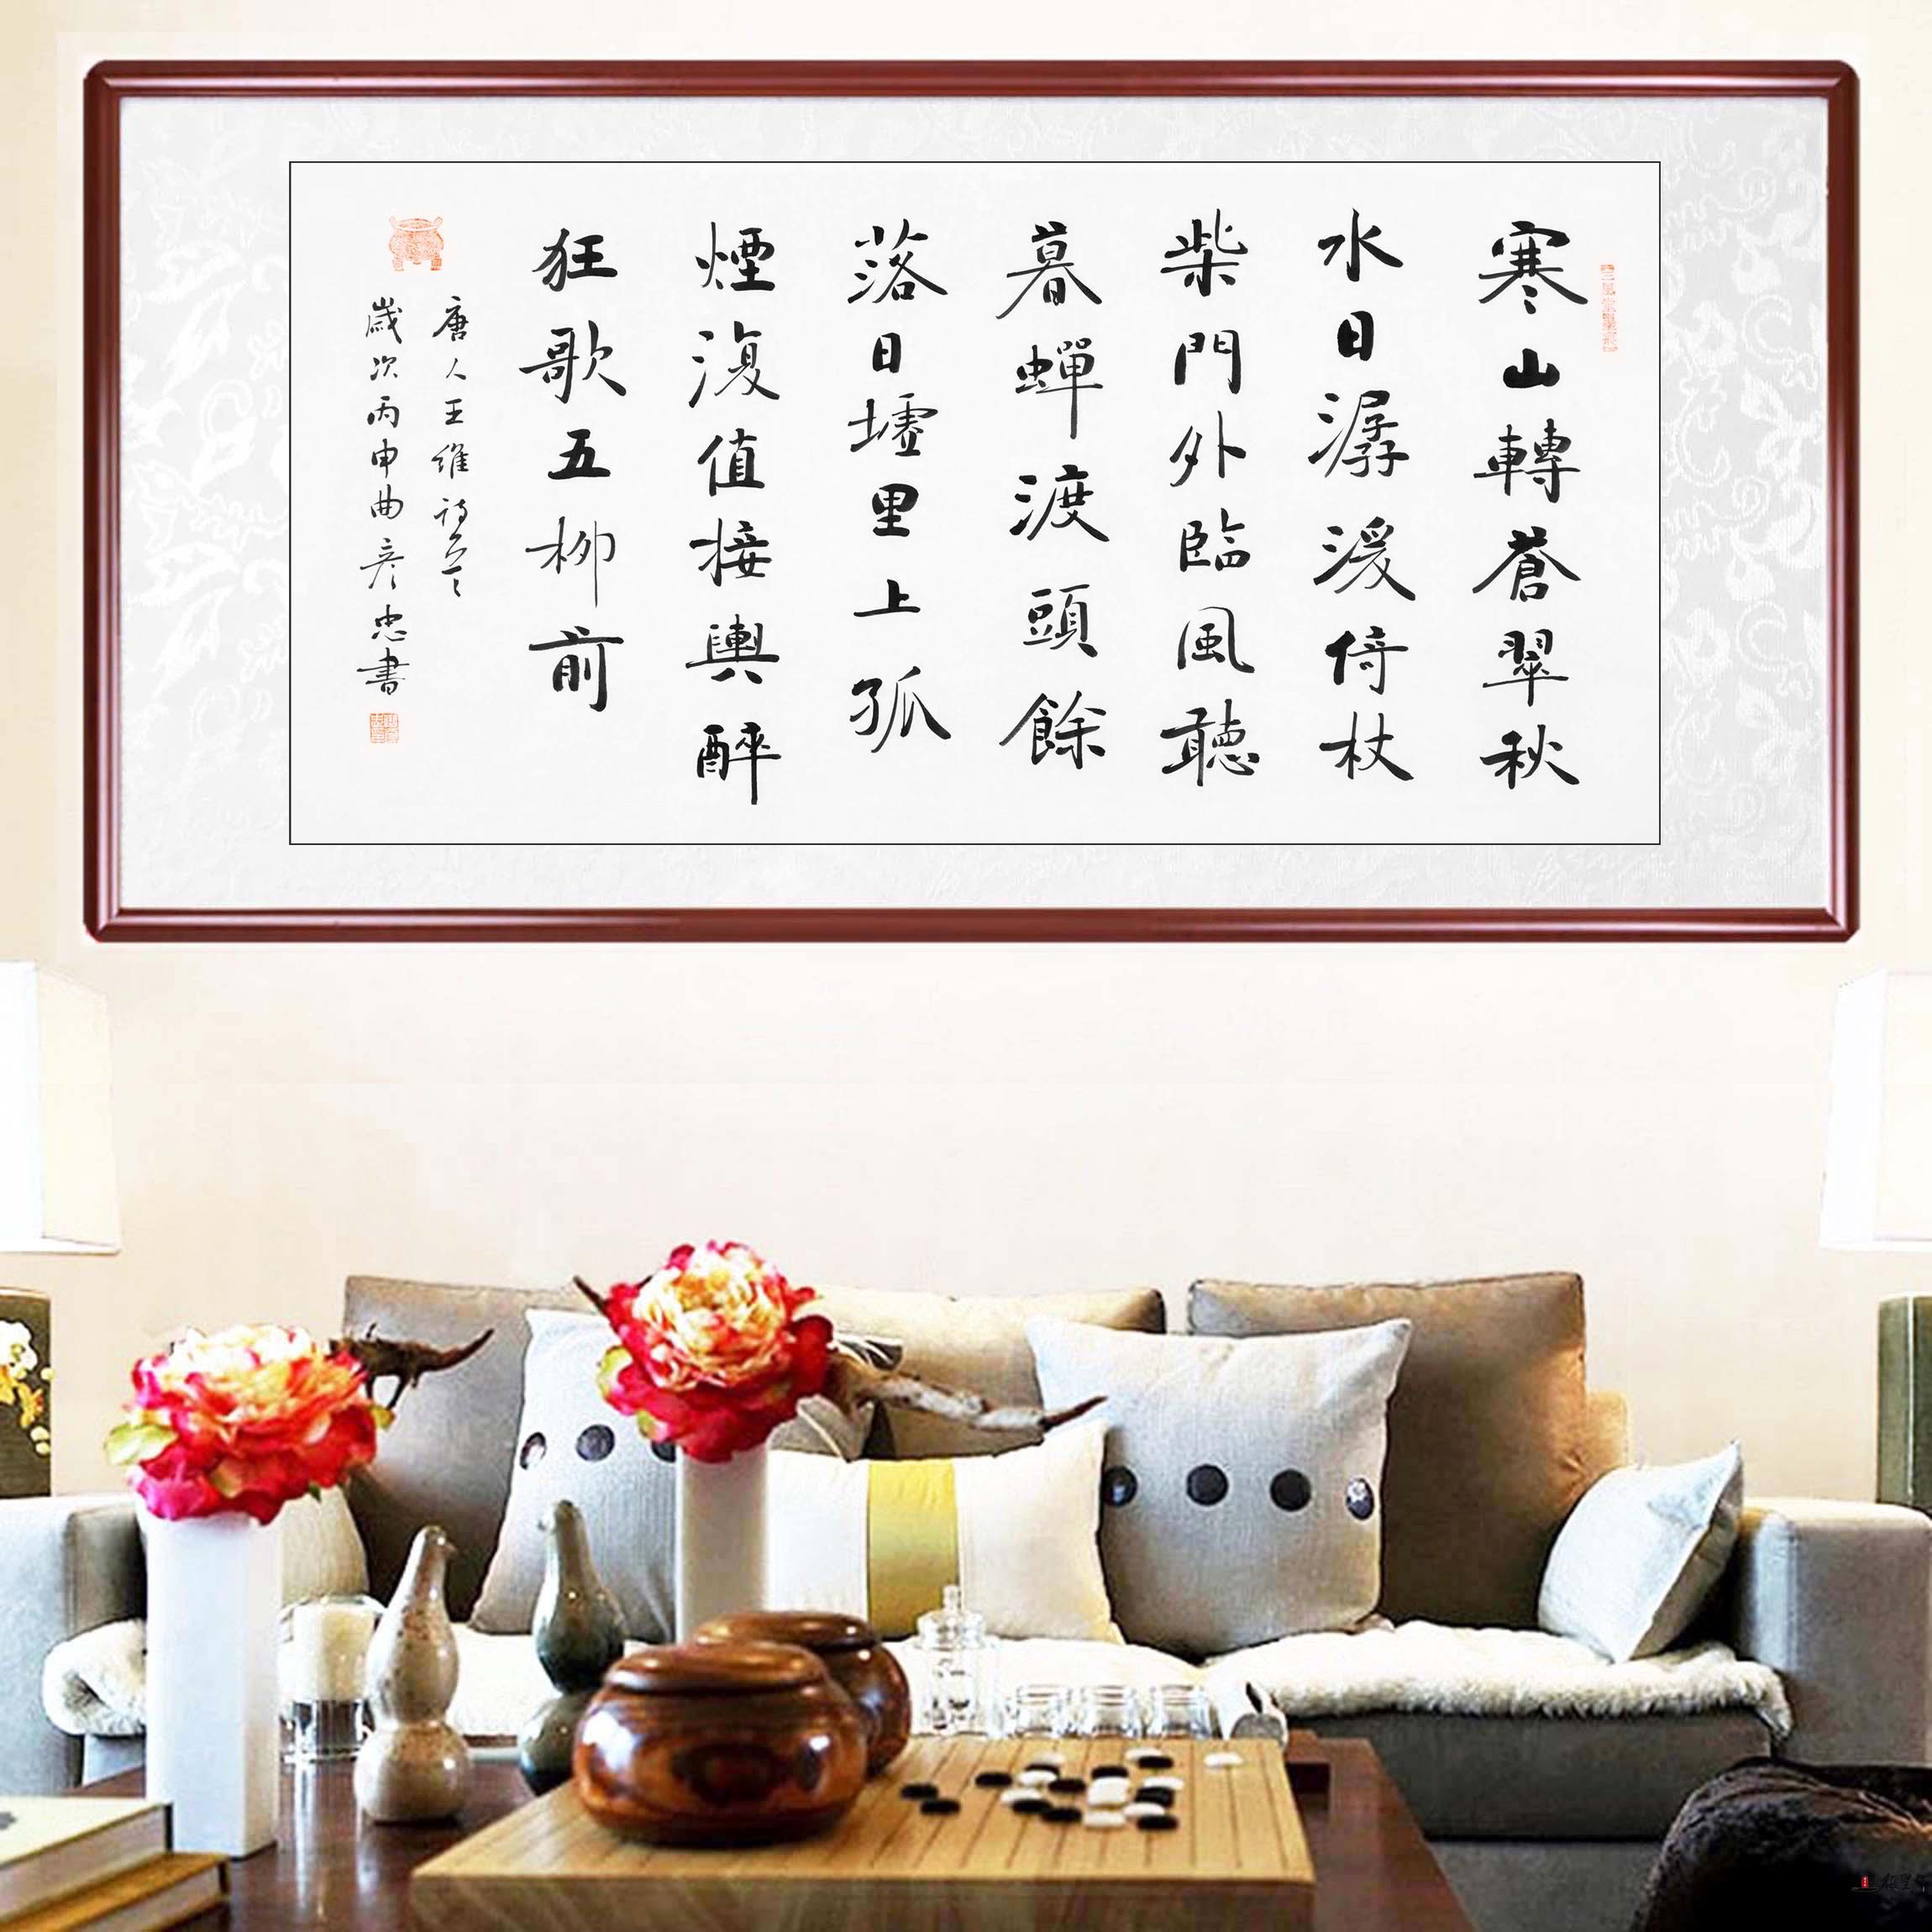 寒山轉蒼翠秋
水日潺湲倚杖
柴門外臨風聽
暮蟬渡頭餘
落日墟里上孤
煙復值接輿醉
狂歌五柳前
唐人王維詩一首
歲次丙申曲彥忠書